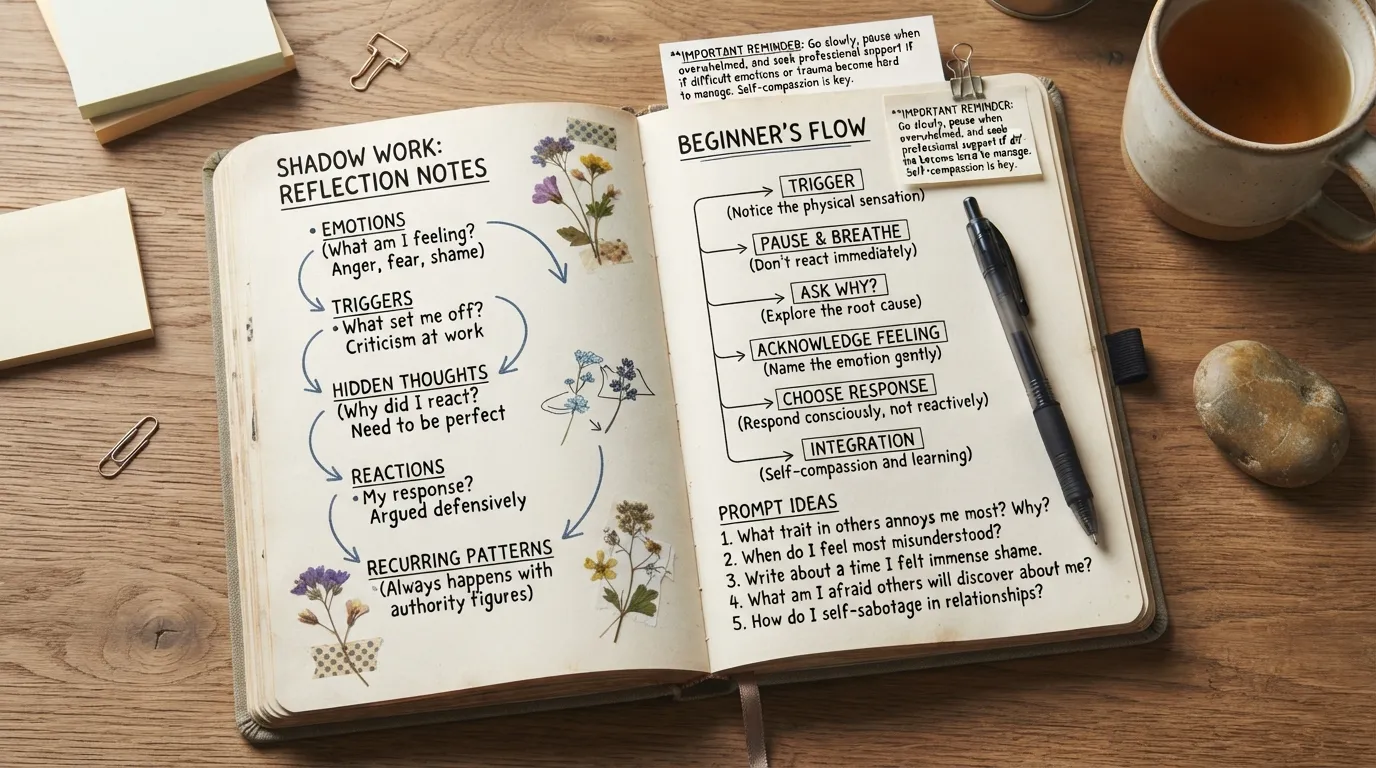 SHADOW WORK:
REFLECTION NOTES
• EMOTIONS
(What am I feeling?
Anger, fear, shame)
TRIGGERS
• What set me off?
Criticism at work
HIDDEN THOUGHTS
(Why did I react?
Need to be perfect
REACTIONS
• My response?
Argued defensively
RECURRING PATTERNS
(Always happens with
authority figures)
**IMPORTANT REMINDER: Go slowly, pause when
overwhelmed, and seek professional support if
if difficult emotions or trauma become hard
to manage. Self-compassion is key.
**IMPORTANT REMINDCR:
Go slowly, pause when
overwhelmed, and seek
professional support if
manage.
Self-compassion is key.
BEGINNER'S FLOW
TRIGGER
(Notice the physical sensation)
PAUSE & BREATHE
(Don't react immediately)
ASK WHY?
(Explore the root cause)
ACKNOWLEDGE FEELING
(Name the emotion gently)
CHOOSE RESPONSE
(Respond consciously, not reactively)
INTEGRATION
(Self-compassion and learning)
PROMPT IDEAS
1. What trait in others annoys me most? Why?
2. When do I feel most misunderstood?
3. Write about a time I felt immense shame.
4. What am I afraid others will discover about me?
5. How do I self-sabotage in relationships?